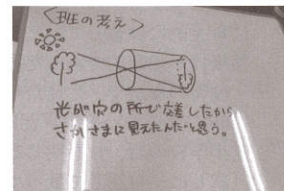 〈班の考え〉
光が穴の所で交差したから
さかさまに見えたんだと思う。